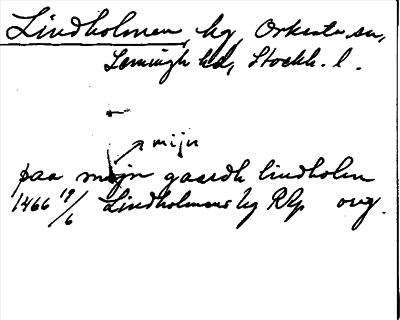 Lindholmen, hg, Orkesta sn,
Seminghundra hd, Stockh. l.
mijn
paa mojn gaardh lindholm
1466 19/6 Lindholmens hg RAp orig.